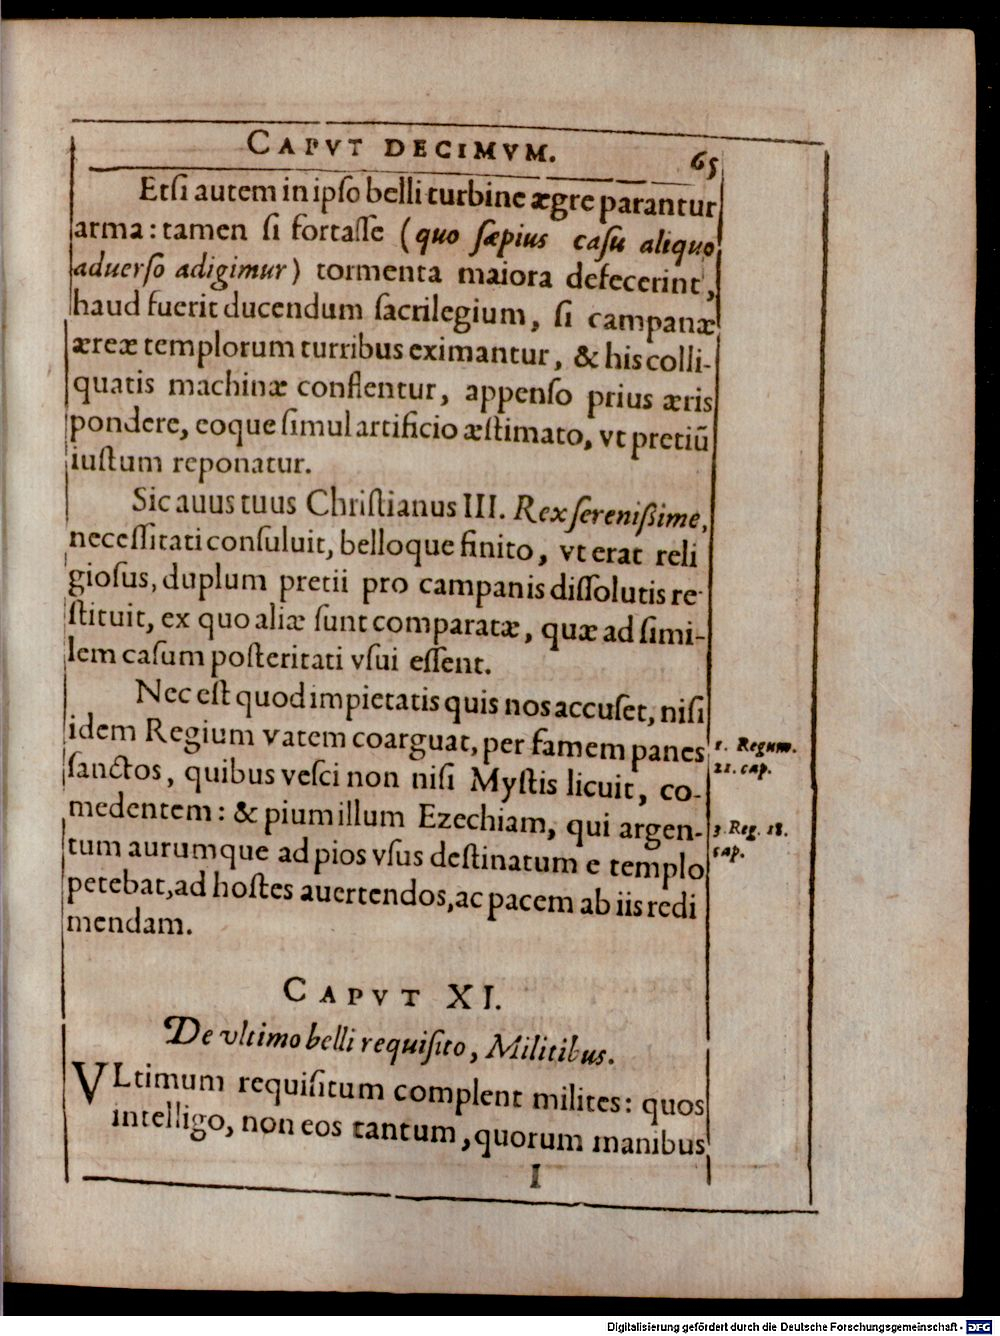 CAPVT DECIMVM. 65
Etſi autem in ipſo belli turbine ægre parantur
arma: tamen ſi fortaſſe (quo ſæpius caſu aliquo
aduerſo adigimur) tormenta maiora defecerint,
haud fuerit ducendum ſacrilegium, ſi campanæ
æreæ templorum turribus eximantur, & his colli-
quatis machinæ conflentur, appenſo prius æris
pondere, eoque ſimul artificio æſtimato, vt pretiū
iuſtum reponatur.
Sic auus tuus Chriſtianus III. Rex ſereniſſime,
neceſſitati conſuluit, belloque finito, vt erat reli
gioſus, duplum pretii pro campanis diſſolutis re-
ſtituit, ex quo aliæ ſunt comparatæ, quæ ad ſimi-
lem caſum poſteritati vſui eſſent.
Nec eſt quod impietatis quis nos accuſet, niſi
idem Regium vatem coarguat, per famem panes
1. Regum.
ſanctos, quibus veſci non niſi Myſtis licuit, co-
21. cap.
medentem: & pium illum Ezechiam, qui argen-
3. Reg. 18.
tum aurumque ad pios vſus deſtinatum e templo
cap.
petebat, ad hoſtes auertendos, ac pacem ab iis redi
mendam.
CAPVT XI.
De vltimo belli requiſito, Militibus.
VLtimum requiſitum complent milites: quos
intelligo, non eos tantum, quorum manibus
I
Digitalisierung gefördert durch die Deutsche Forschungsgemeinschaft - DFG